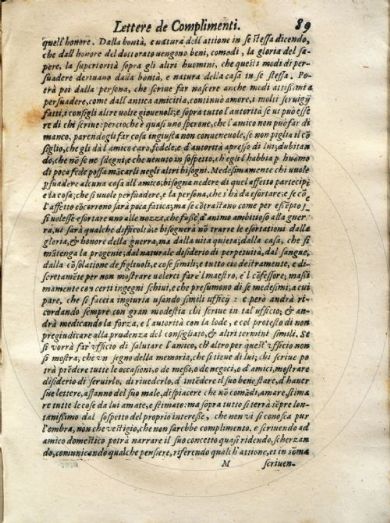 Lettere de Complimenti. 89
quell'honore. Dalla bontà, e natura dell'attione in se stessa dicendo,
che dall'honore del dottorato uengono beni, comodi, la gloria del sa-
pere, la superiorità sopra gli altri huomini, che questi modi di per-
suadere deriuano dalla bontà, e natura della cosa in se stessa. Po-
trà poi dalla persona, che scriue far nascere anche modi attissimi a
persuadere, come dall'antica amicitia, continuo amore, i molti seruigij
fatti, i consigli altre uolte gioueuoli: e sopra tutto l'autorità se ui può esse
re di chi scriue: percio, ch'è quasi uno sperone, che l'amico non può far di
manco, parendogli far cosa ingiusta non conueneuole, se non piglia il cõ
siglio, che gli dà l'amico caro, fedele, e d'autorità apresso di lui; dubitan-
do, che nõ se ne sdegni, e che uenuto in sospetto, ch'egli l'habbia p huomo
di poca fede possa mãcarli negli altri bisogni. Medesimamente chi uuole
psuadere alcuna cosa all'amico bisogna uedere di quel affetto partecipi
e la cosa, che si uuole persuadere, e la persona, che s'hà da esortare, e se cõ
l'affetto occorreno sarà poca fatica; ma se cõtrastano come per esẽpio se
si uolesse esortare uno alle nozze, che fusse d'animo ambitioso alla guer-
ra, ui sarà qualche difficoltà: e bisognerà nõ trarre le esortationi dalla
gloria, & honore della guerra, ma dalla uita quieta, dalla casa, che si
mãtenga la progenie, dal naturale desiderio di perpetuità, dal sangue,
dalla cõsolatione de figliuoli, e cose simili, e tutto ciò destramente, e di-
scretamẽte per non mostrare uolerci fare'l maestro, e'l cõfessore, massi
mamente con certi ingegni schiui, e che presumono di se medesimi, a cui
pare, che si faccia ingiuria usando simili ufficij: e però andrà ri-
cordando sempre con gran modestia chi scriue in tal ufficio, &
andrà medicando la forza, e l'autorità con la lode, e col protesto di non
pregiudicare alla prudenza del consigliato, & altri termini simili. Se
si uorrà far ufficio di salutare l'amico, ch'altro per quest'ufficio non
si mostra, che un segno della memoria, che si tiene di lui; chi scriue po
trà prẽdere tutte le occasioni, o de messo, o de negocio, d'amici, mostrare
desiderio di seruirlo, di riuederlo, d'intẽdere il suo benestare, d'hauer
sue lettere, affanno del suo male, dispiacere che nõ comãdi, amare, stima
re tutte le cose da lui amate, e stimate: ma sopra tutto si terrà sẽpre lon-
tanissimo dal sospetto del proprio interesse, che non ui si conosca pur
l'ombra, non che uestigio, che non sarebbe complimento. e scriuendo ad
amico domestico potrà narrare il suo concetto quasi ridendo, scherzan
do, comunicando qualche pensiere, riferendo qualch'attione, et in somma
M scriuen-